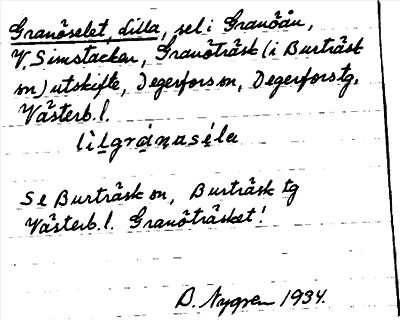 Granöselet, lilla, sel i Granöån,
V. Simstackan, Granöträsk (i Burträsk
sn) utskifte, Degerfors sn, Degerfors tg.
Västerb. l.
lìlgránaséla
Se Burträsk sn, Burträsk tg
Västerb. l. Granöträsket!
D. Nygren 1934.